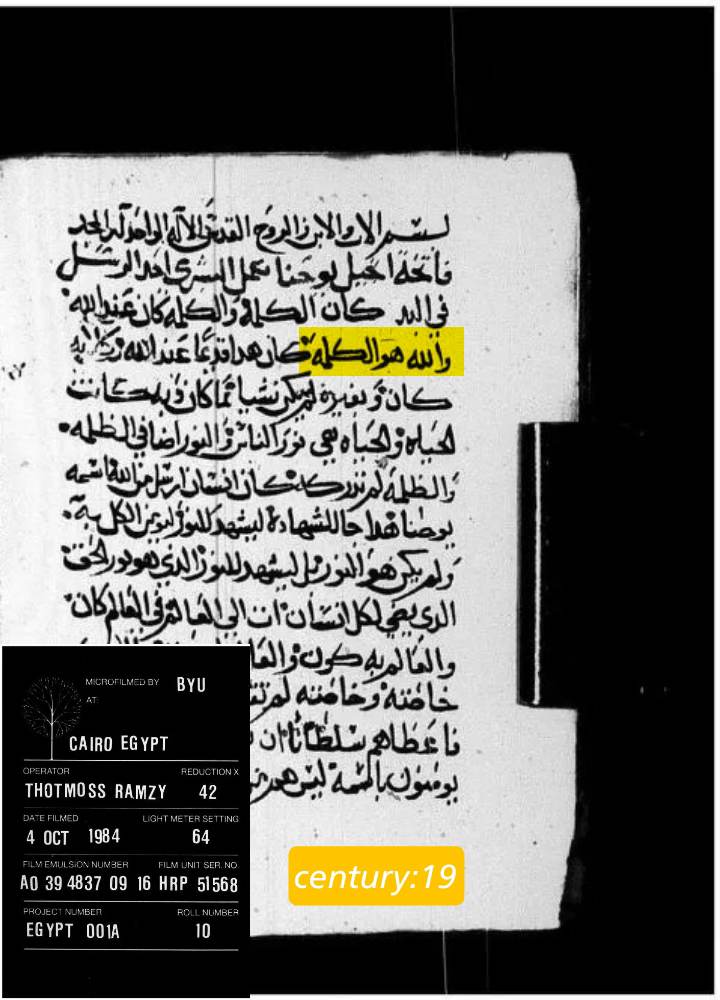 بسم الاب والابن والروح القدس الاله الواحد له المجد
فاتحه انجيل يوحنا
في البد كان الكلمة والكلمه كان عند الله
والله هو الكلمه كان هدا قديما عند الله
كان وبغيره لم يكن شيا مما كان وبه كانت
الحياه والحياه هي نور الناس والنور اضا في الظلمه
والظلمه لم تدركه كان انسان ارسل من الله اسمه
يوحنا هدا جا للشهادة ليشهد للنور ليومن الكل به
ولم يكن هو النور بل ليشهد للنور الدي هو نور الحق
الدي يضي لكل انسان ات الى العالم في العالم كان
والعالم به كون والعا
خاصته وخاصته لم تق
فاعطاهم سلطانا ان
يومنون باسمه ليس هم
MICROFILMED BY BYU
AT:
CAIRO EGYPT
OPERATOR REDUCTION X
THOTMOSS RAMZY 42
DATE FILMED LIGHT METER SETTING
4 OCT 1984 64
FILM EMULSION NUMBER FILM UNIT SER. NO.
A0 39 4837 09 16 HRP 51568
PROJECT NUMBER ROLL NUMBER
EGYPT 001A 10
century:19